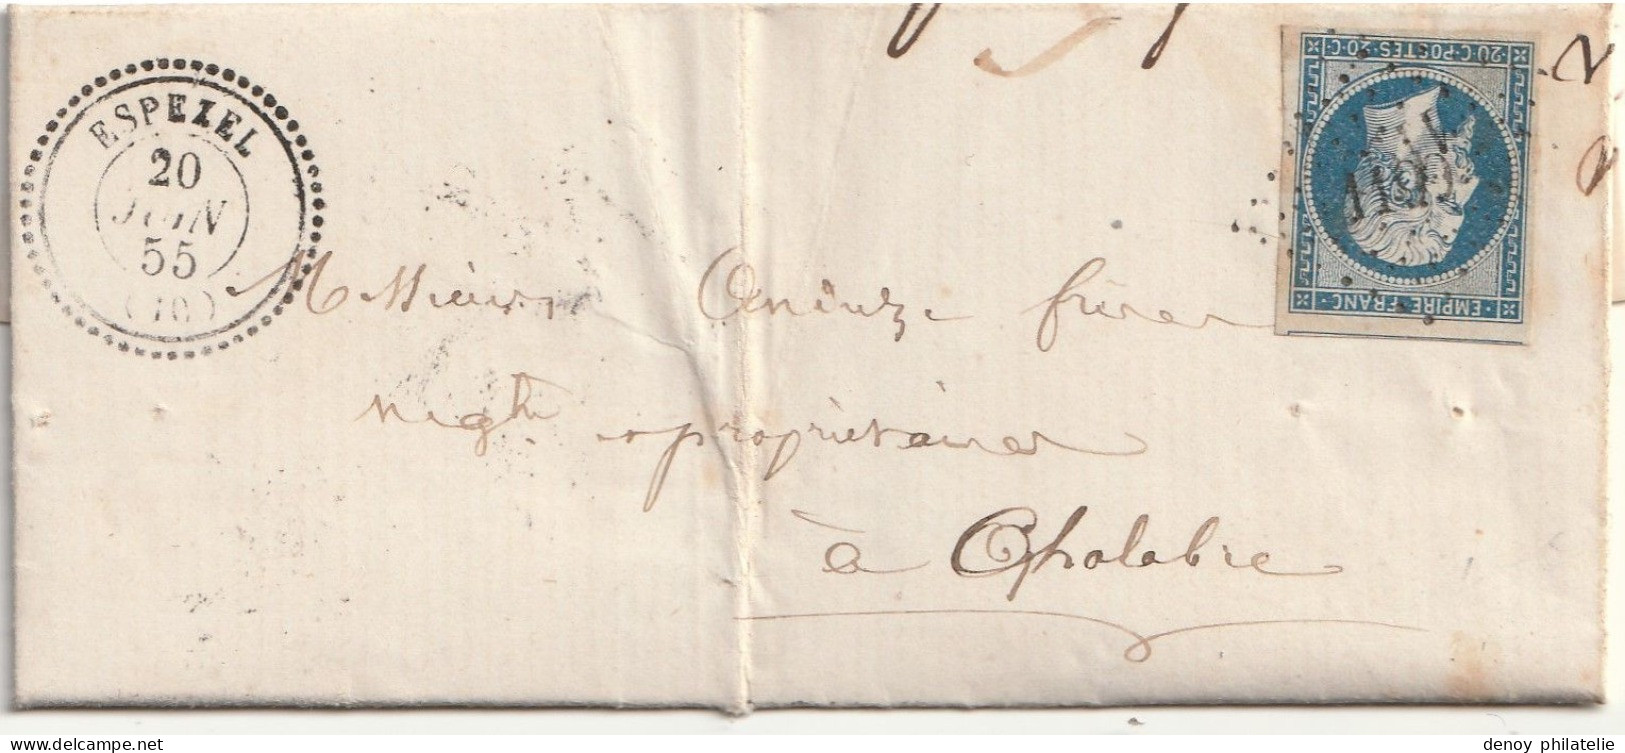 ESPEZEL
20
JUIN
55
(10)
20·C·POSTES·20·C
EMPIRE·FRANC
Messieurs Anduze frères
negts propriétaires
à Chalabre
denoy philatelie